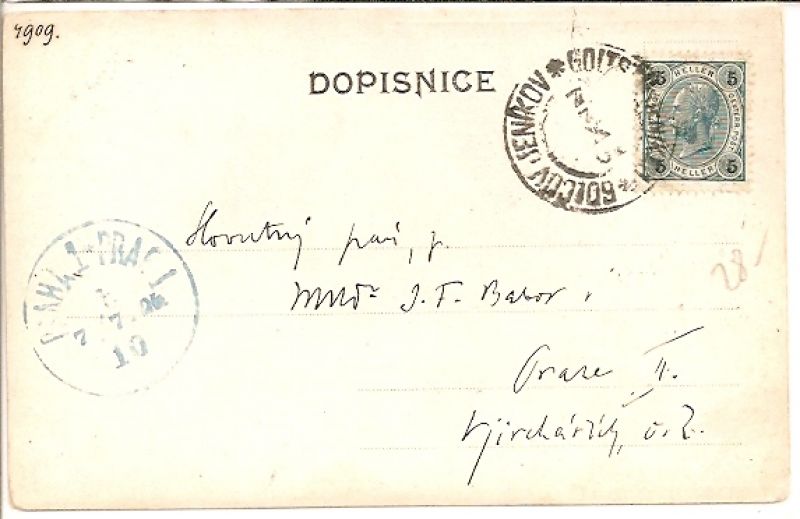 1909.
DOPISNICE
GOLČŮV JENÍKOV * GOLTSCH
5 HELLER 5
OESTERR. POST
5 HELLER 5
PRAHA 1 - PRAG 1
7
10
28
Slovutný pan, p.
MUDr J. F. Babor v
Praze II.
v Jirchářích, č. 7.